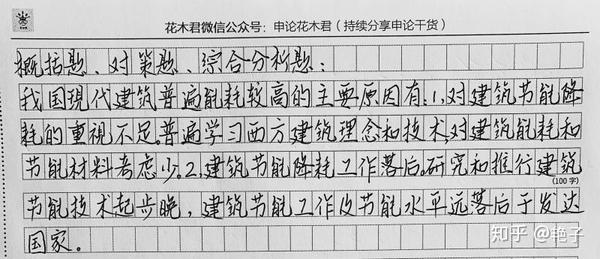 花木君微信公众号：申论花木君（持续分享申论干货）
概括题、对策题、综合分析题：
我国现代建筑普遍能耗较高的主要原因有：1.对建筑节能降
耗的重视不足。普遍学习西方建筑理念和技术，对建筑能耗和
节能材料考虑少。2.建筑节能降耗工作落后。研究和推行建筑
(100字)
节能技术起步晚，建筑节能工作及节能水平远落后于发达
国家。
知乎 @艳子